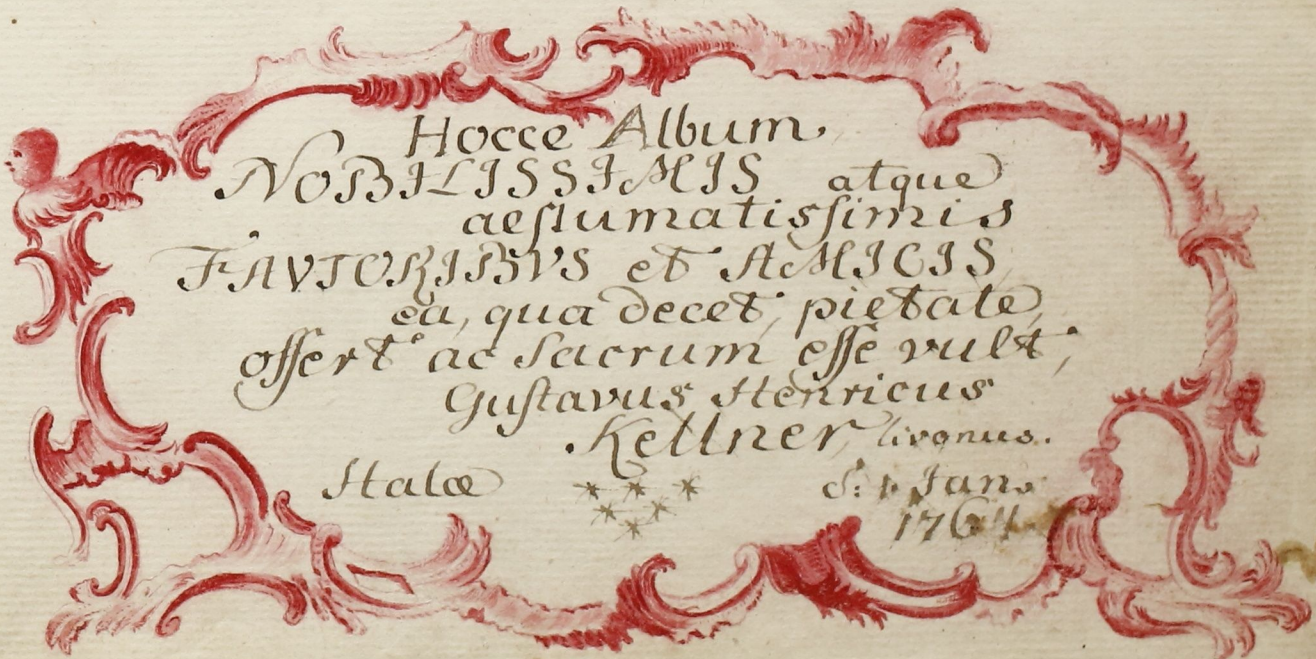 Hocce Album
NOBILISSIMIS atque
aestumatissimis
FAVTORIBVS et AMICIS
ea, qua decet, pietate
offert ac sacrum esse vult,
Gustavus Henricus
Kellner, livonus.
Halæ d: 1 Jan.
1764